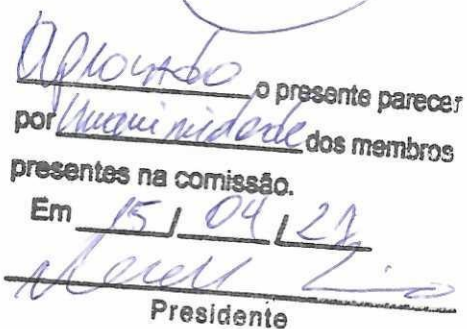 Aprovado o presente parecer
por Unanimidade dos membros
presentes na comissão.
Em 15 / 04 / 21
Presidente